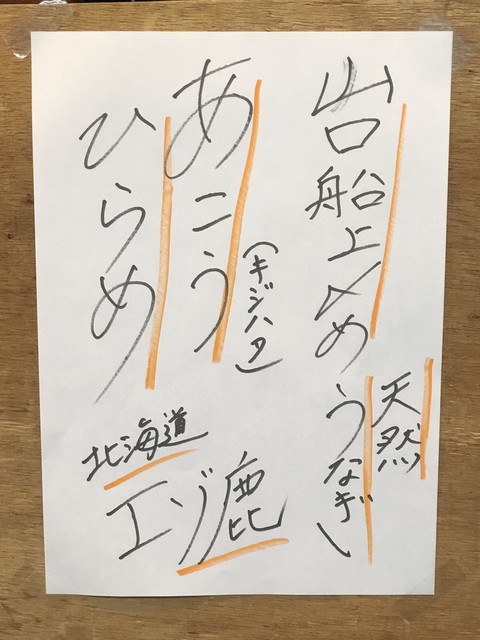 岩船上〆め
天然
うなぎ
あこう
(キジハタ)
ひらめ
北海道
エゾ鹿